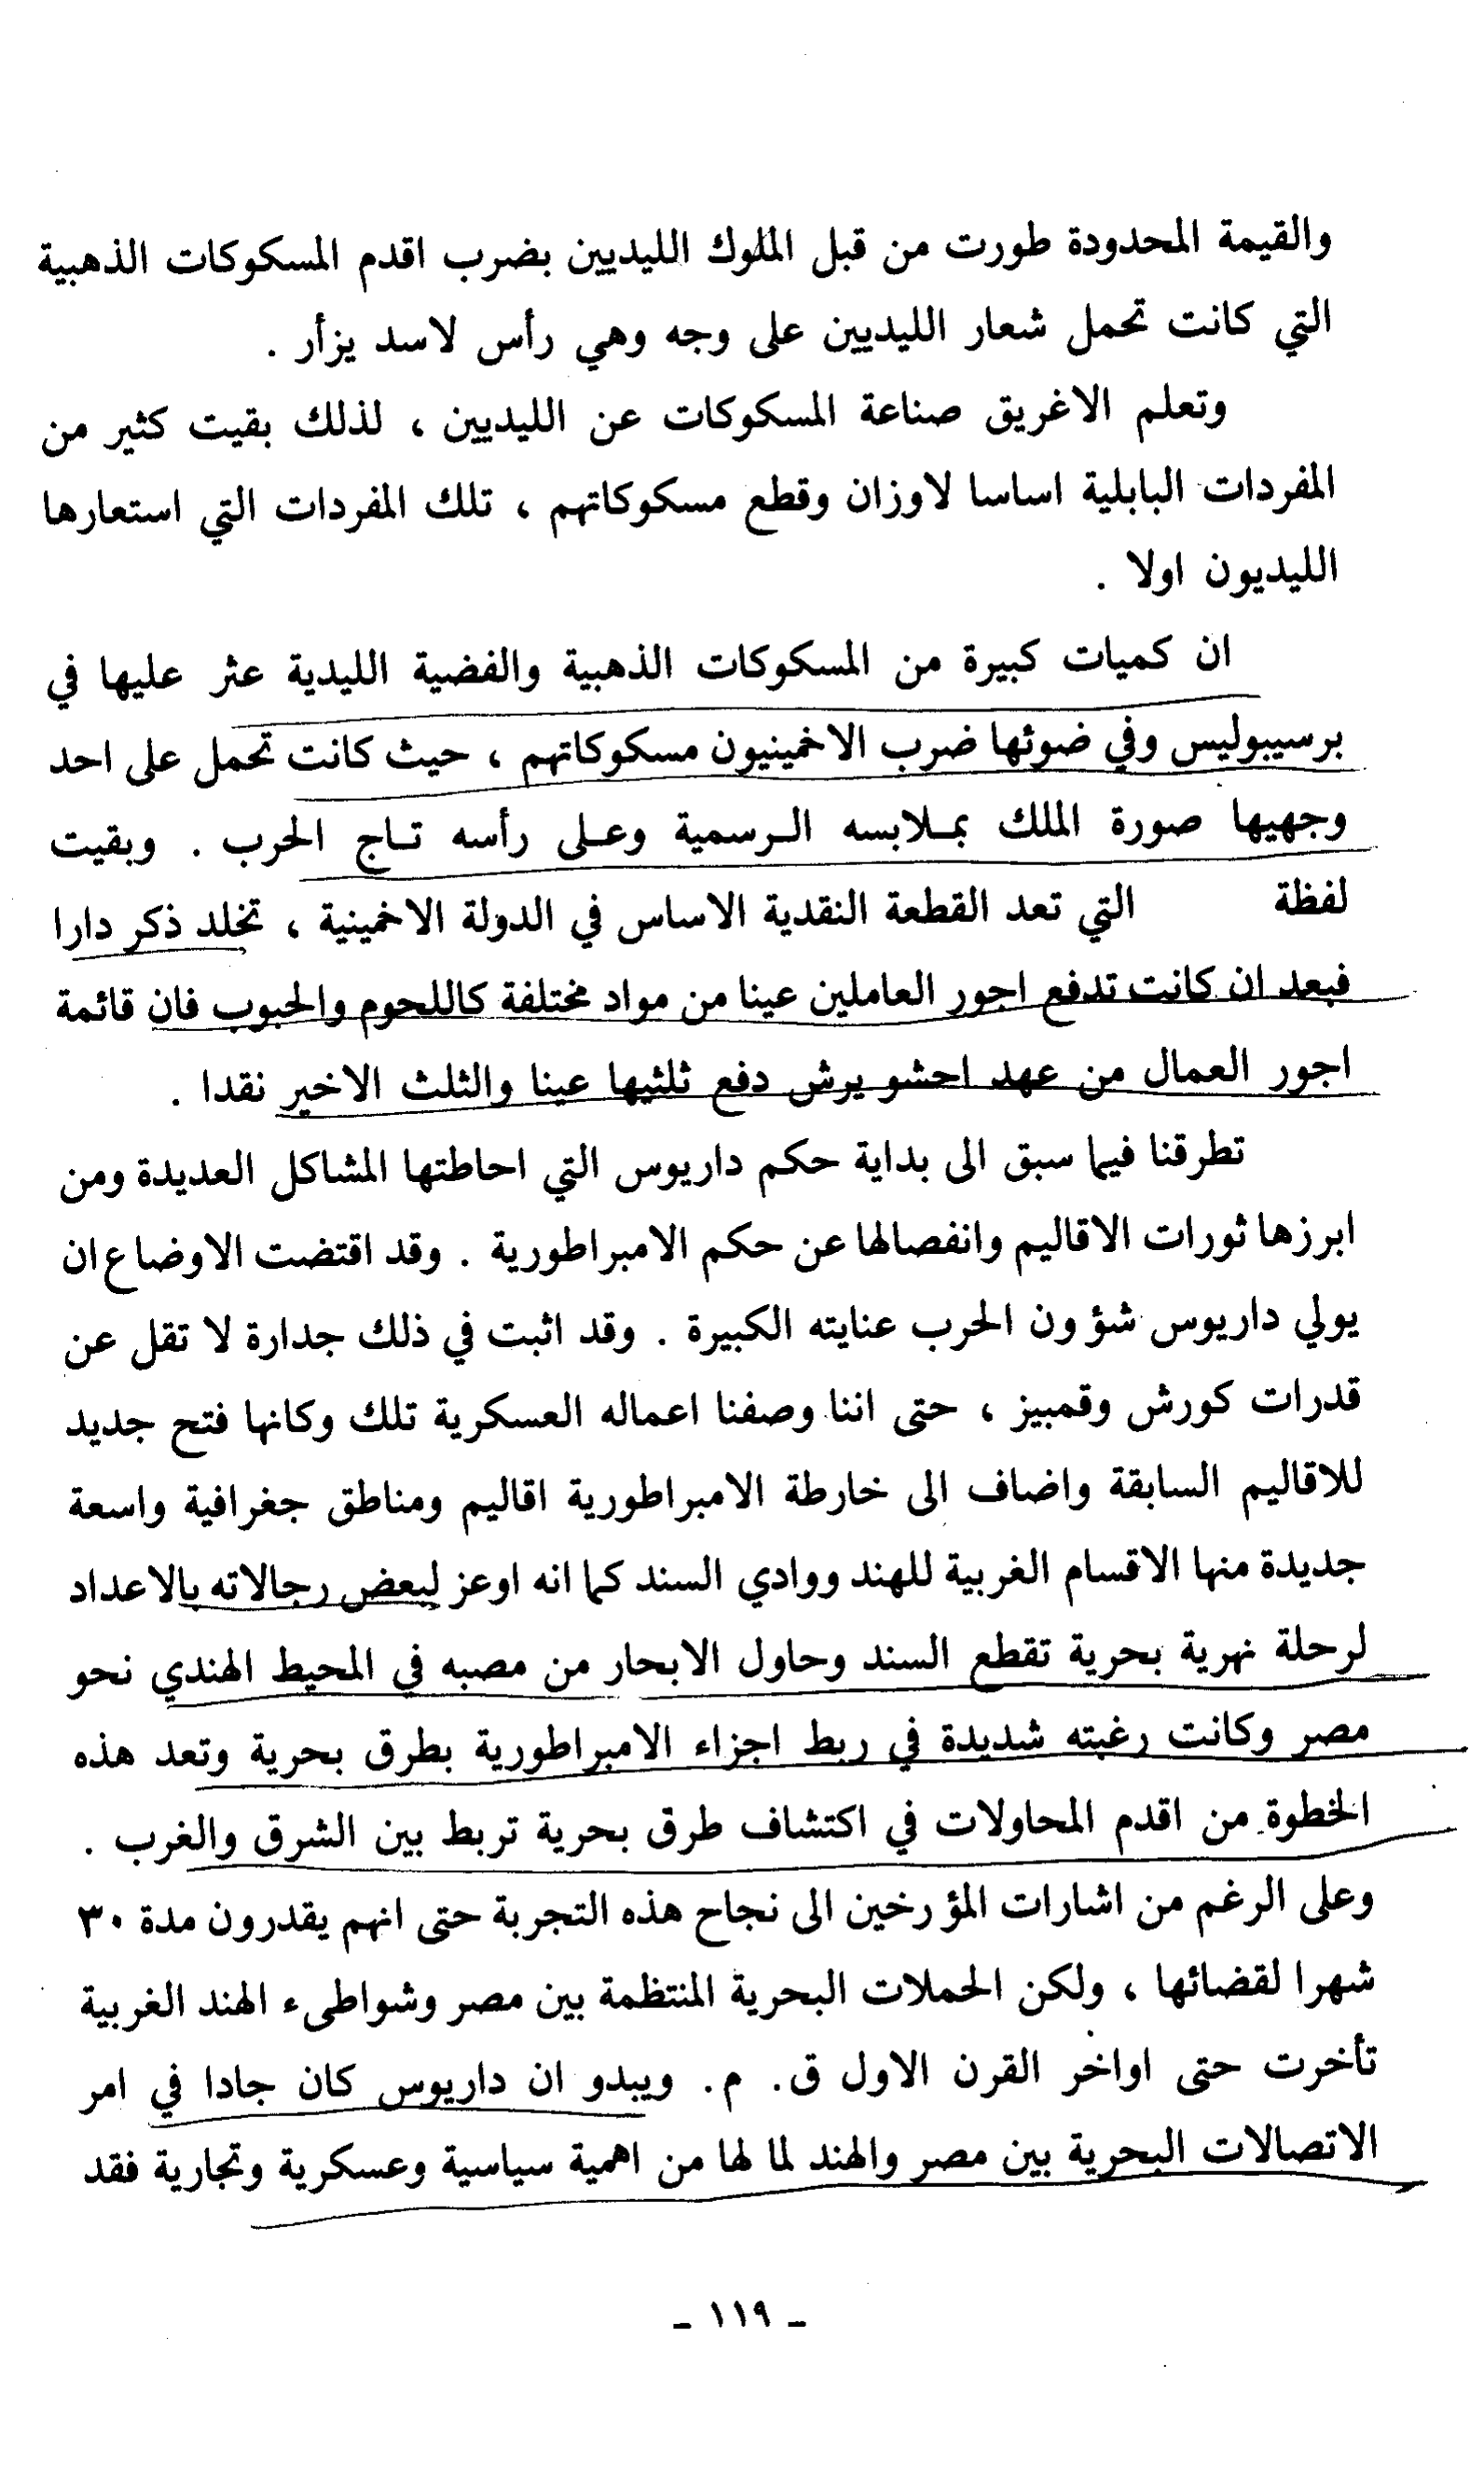 والقيمة المحدودة طورت من قبل الملوك الليديين بضرب اقدم المسكوكات الذهبية
التي كانت تحمل شعار الليديين على وجه وهي رأس لاسد يزأر .
وتعلم الاغريق صناعة المسكوكات عن الليديين ، لذلك بقيت كثير من
المفردات البابلية اساسا لاوزان وقطع مسكوكاتهم ، تلك المفردات التي استعارها
الليديون اولا .
ان كميات كبيرة من المسكوكات الذهبية والفضية الليدية عثر عليها في
برسيبوليس وفي ضوئها ضرب الاخمينيون مسكوكاتهم ، حيث كانت تحمل على احد
وجهيها صورة الملك بملابسه الرسمية وعلى رأسه تاج الحرب . وبقيت
لفظة التي تعد القطعة النقدية الاساس في الدولة الاخمينية ، تخلد ذكر دارا
فبعد ان كانت تدفع اجور العاملين عينا من مواد مختلفة كاللحوم والحبوب فان قائمة
اجور العمال من عهد احشويرش دفع ثلثيها عينا والثلث الاخير نقدا .
تطرقنا فيما سبق الى بداية حكم داريوس التي احاطتها المشاكل العديدة ومن
ابرزها ثورات الاقاليم وانفصالها عن حكم الامبراطورية . وقد اقتضت الاوضاع ان
يولي داريوس شؤون الحرب عنايته الكبيرة . وقد اثبت في ذلك جدارة لا تقل عن
قدرات كورش وقمبيز ، حتى اننا وصفنا اعماله العسكرية تلك وكانها فتح جديد
للاقاليم السابقة واضاف الى خارطة الامبراطورية اقاليم ومناطق جغرافية واسعة
جديدة منها الاقسام الغربية للهند ووادي السند كما انه اوعز لبعض رجالاته بالاعداد
لرحلة نهرية بحرية تقطع السند وحاول الابحار من مصبه في المحيط الهندي نحو
مصر وكانت رغبته شديدة في ربط اجزاء الامبراطورية بطرق بحرية وتعد هذه
الخطوة من اقدم المحاولات في اكتشاف طرق بحرية تربط بين الشرق والغرب .
وعلى الرغم من اشارات المؤرخين الى نجاح هذه التجربة حتى انهم يقدرون مدة ٣٠
شهرا لقضائها ، ولكن الحملات البحرية المنتظمة بين مصر وشواطىء الهند الغربية
تأخرت حتى اواخر القرن الاول ق. م. ويبدو ان داريوس كان جادا في امر
الاتصالات البحرية بين مصر والهند لما لها من اهمية سياسية وعسكرية وتجارية فقد
ـ ١١٩ ـ